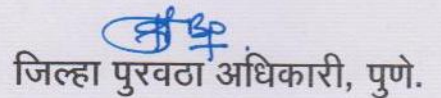 जिल्हा पुरवठा अधिकारी, पुणे.